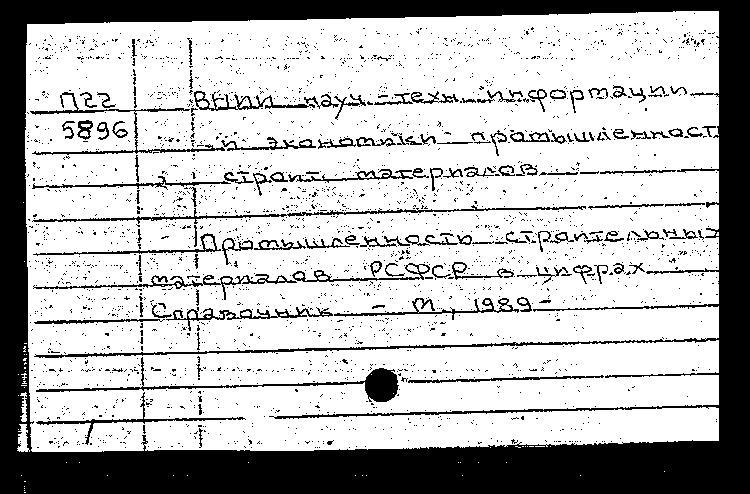 П22 ВНИИ науч.-техн. информации
5896 и экономики промышленност
строит. материалов
Промышленность строительных
материалов РСФСР в цифрах.
Справочник - М., 1989-